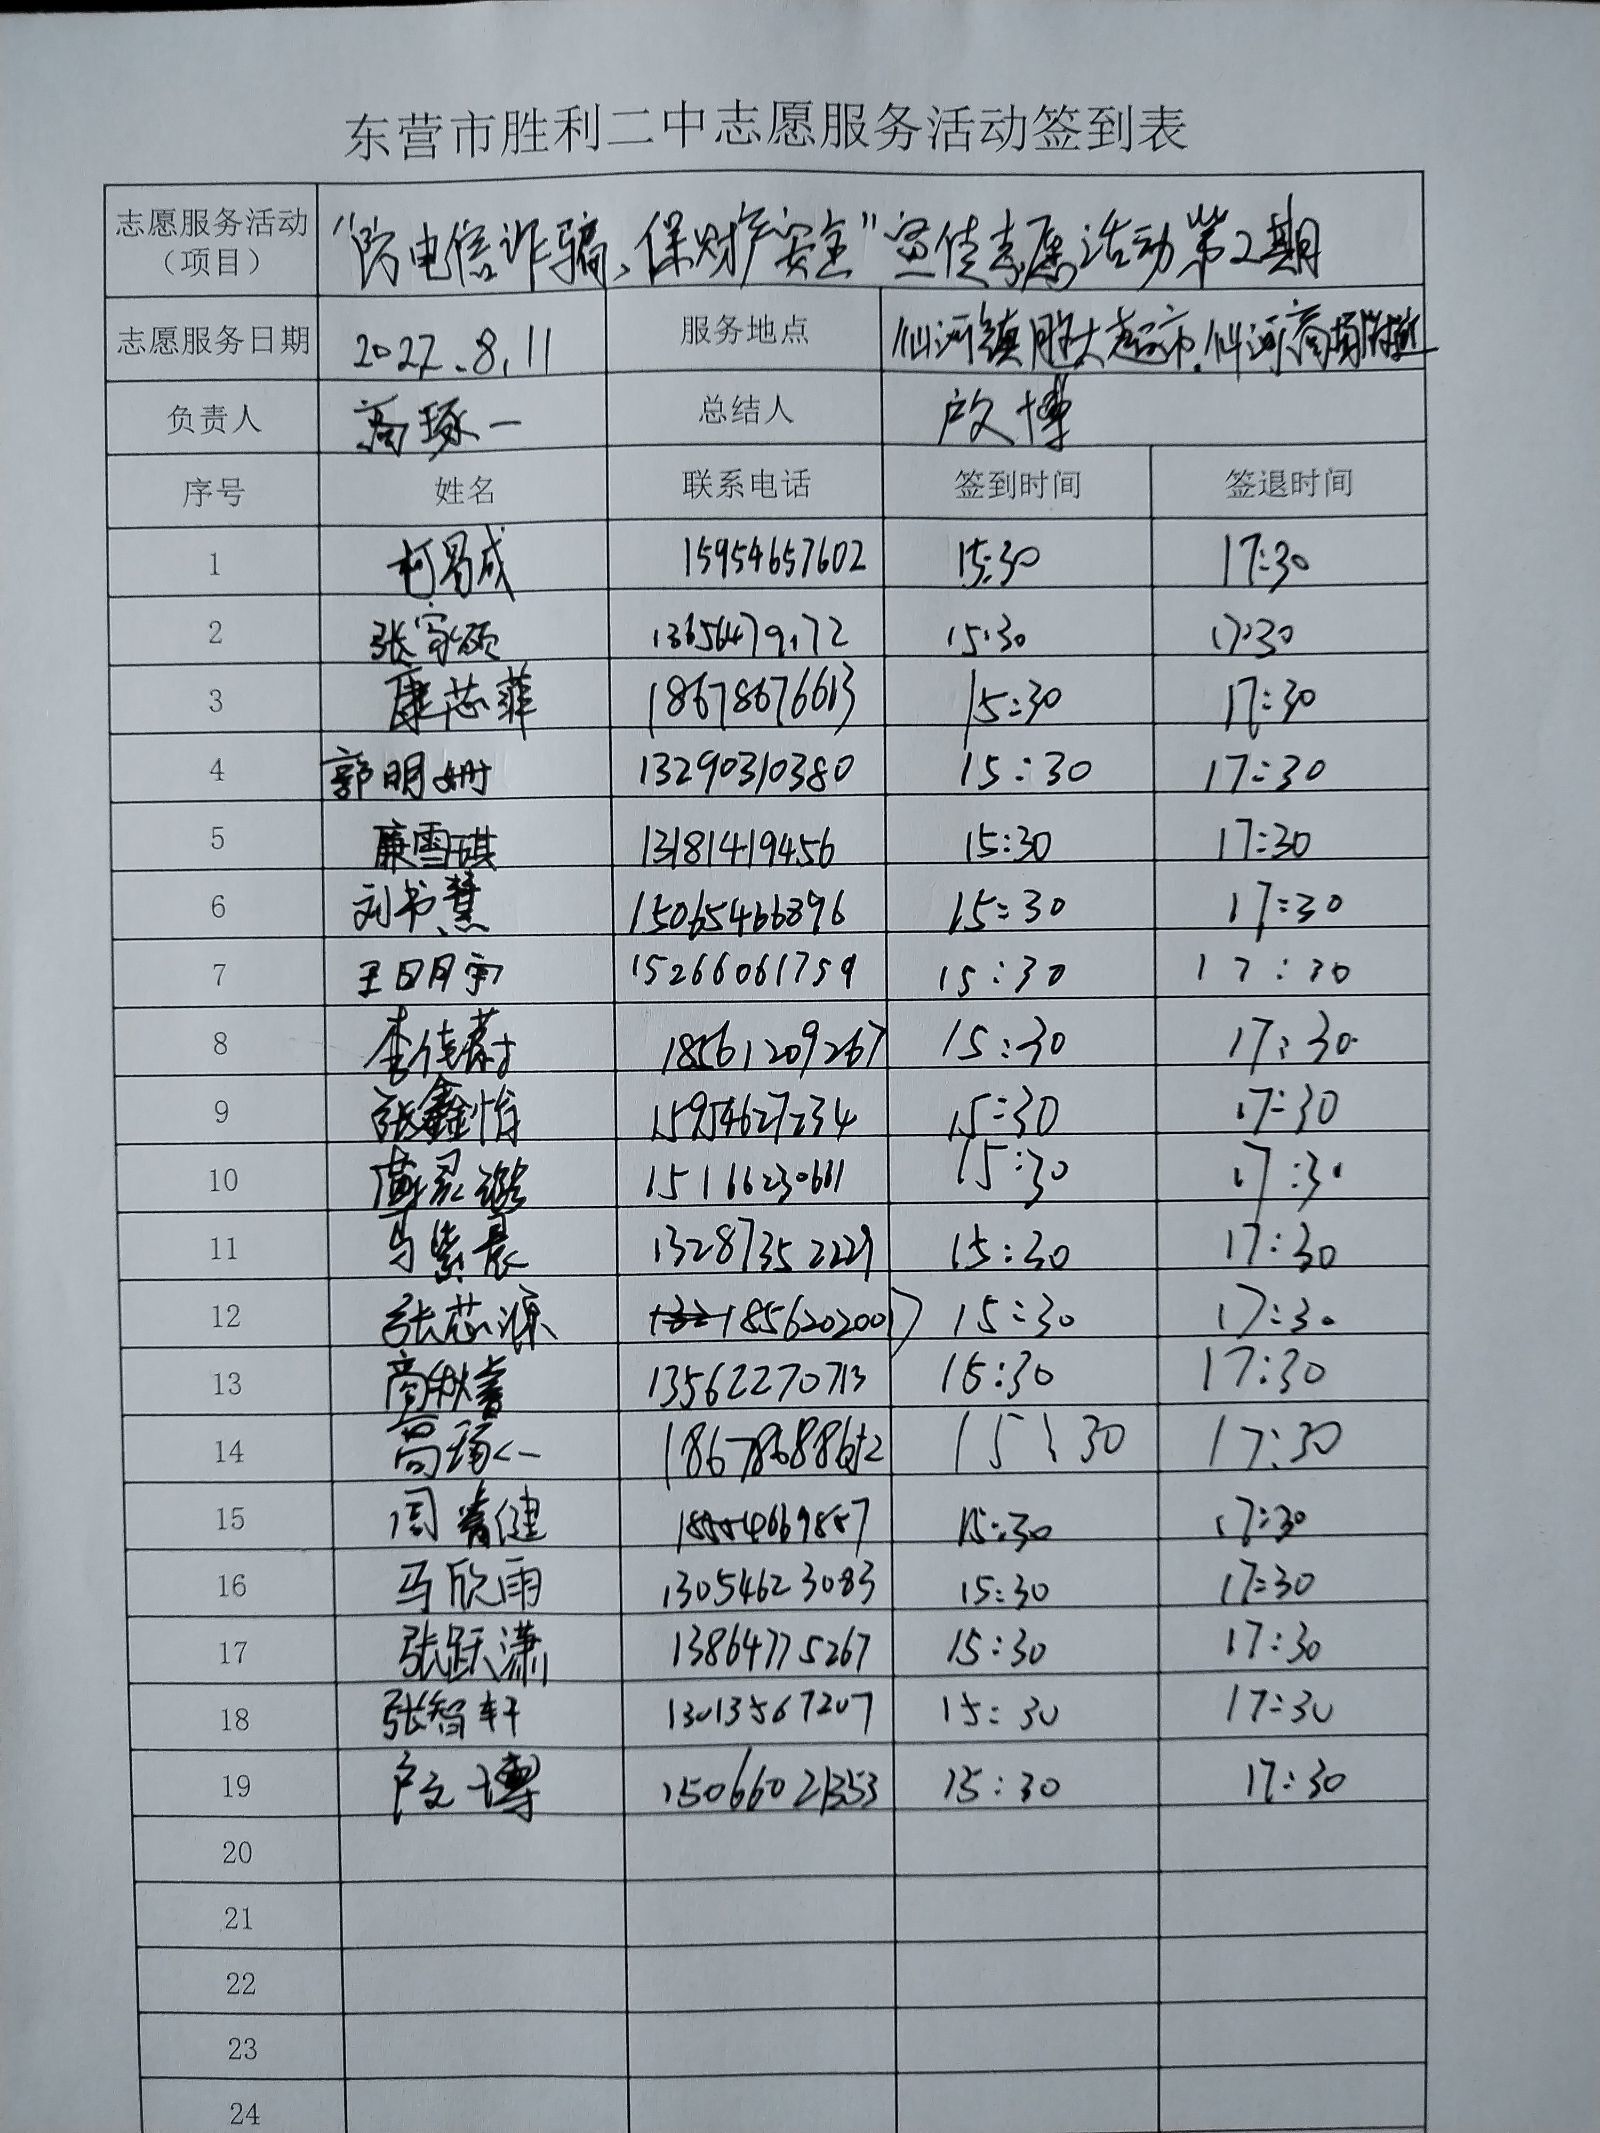 东营市胜利二中志愿服务活动签到表
志愿服务活动（项目） “防电信诈骗、保财产安全”宣传志愿活动第2期
志愿服务日期 2022.8.11 服务地点 仙河镇胜大超市.仙河商场附近
负责人 高琢一 总结人 卢文博
序号 姓名 联系电话 签到时间 签退时间
1 柯易成 15954657602 15:30 17:30
2 张家硕 15:30 17:30
3 康芯菲 18678676613 15:30 17:30
4 郭明姗 13290310380 15:30 17:30
5 廉雪琪 13181419456 15:30 17:30
6 刘书慧 15065466896 15:30 17:30
7 王明宇 15266061759 15:30 17:30
8 李佳蔚 18561209267 15:30 17:30
9 张鑫怡 15954627234 15:30 17:30
10 15166230661 15:30 17:30
11 马紫晨 13287352229 15:30 17:30
12 张芯源 18562020017 15:30 17:30
13 13562270713 15:30 17:30
14 高琢一 15:30 17:30
15 周 健 15:30 17:30
16 马欣雨 13054623083 15:30 17:30
17 张跃潇 13864775267 15:30 17:30
18 张智轩 13013567207 15:30 17:30
19 卢文博 15066021353 15:30 17:30
20
21
22
23
24